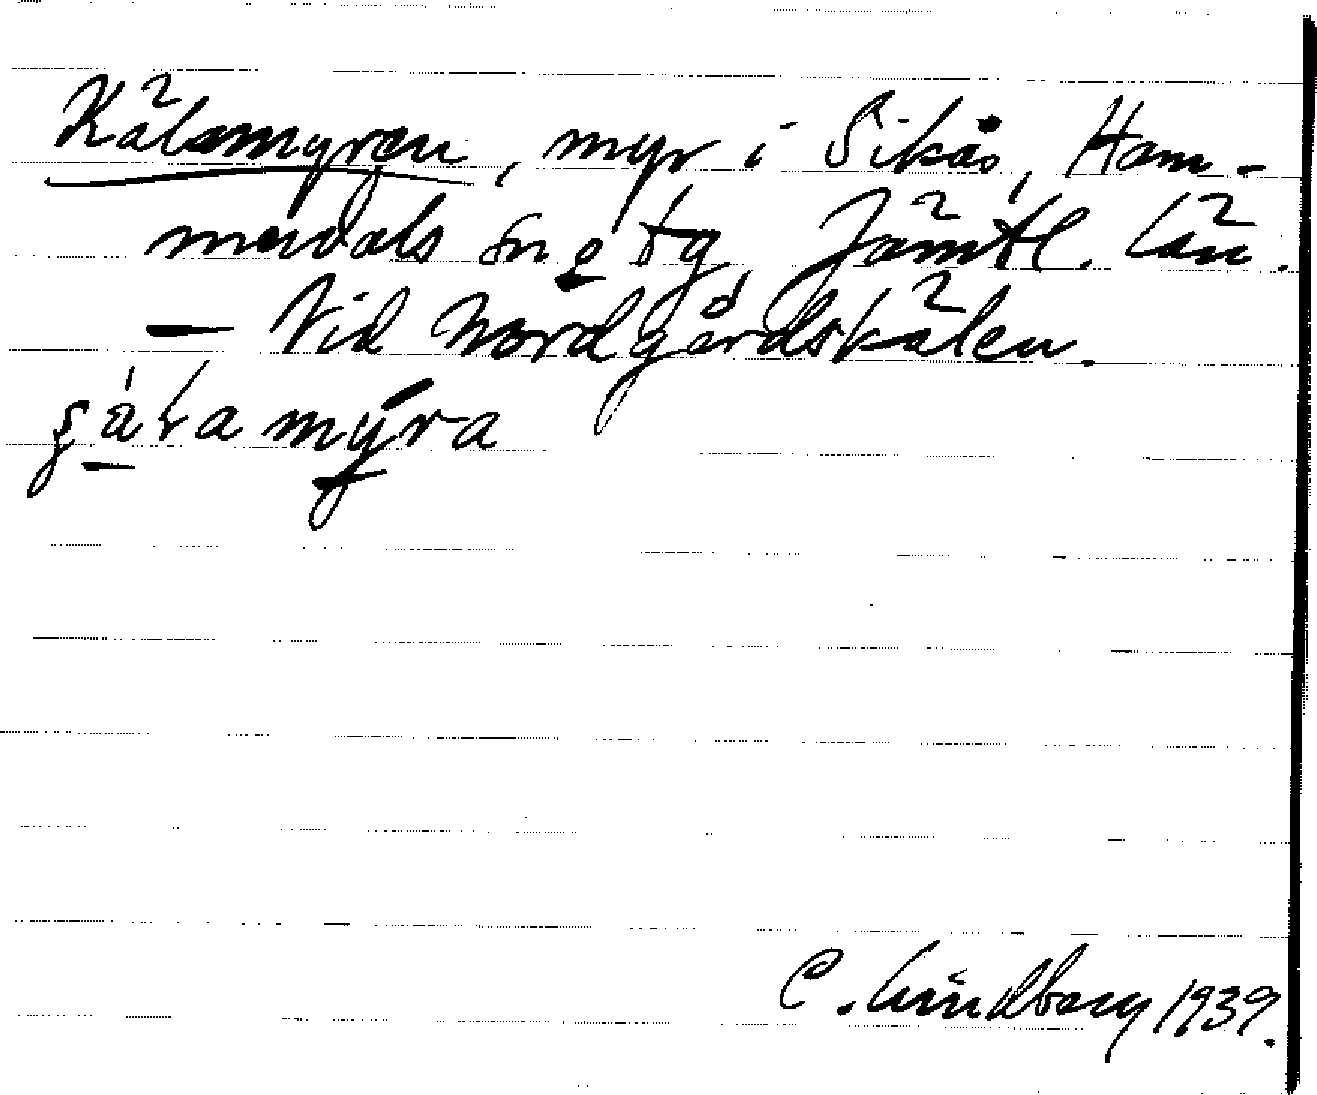 Kälamyren, myr i Sikås, Ham-
merdals sn o tg, Jämtl. län.
— Vid Nordgårdskälen.
mýra
C. Lindberg 1939.